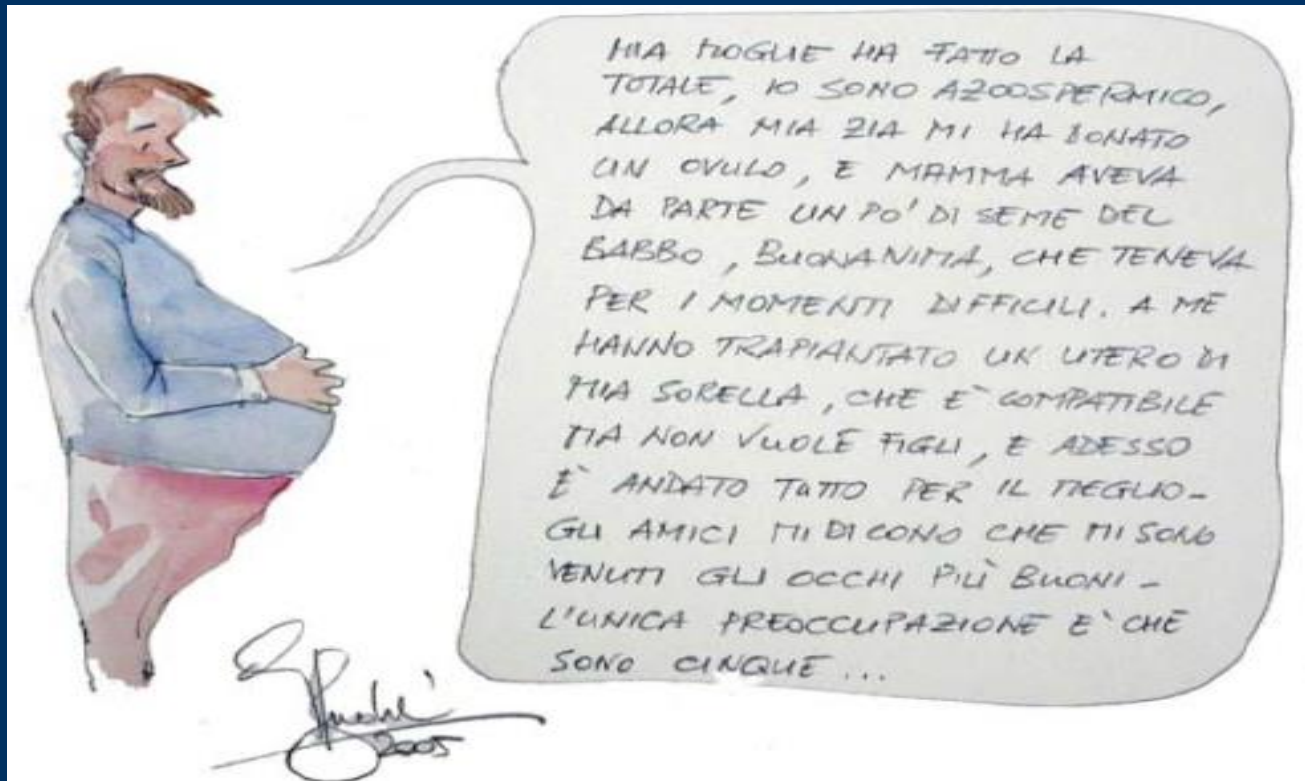 MIA MOGLIE HA FATTO LA
TOTALE, IO SONO AZOOSPERMICO,
ALLORA MIA ZIA MI HA DONATO
UN OVULO, E MAMMA AVEVA
DA PARTE UN PO' DI SEME DEL
BABBO, BUONANIMA, CHE TENEVA
PER I MOMENTI DIFFICILI. A ME
HANNO TRAPIANTATO UN UTERO DI
MIA SORELLA, CHE E` COMPATIBILE
MA NON VUOLE FIGLI, E ADESSO
E` ANDATO TUTTO PER IL MEGLIO-
GLI AMICI MI DICONO CHE MI SONO
VENUTI GLI OCCHI PIÙ BUONI-
L'UNICA PREOCCUPAZIONE E` CHE
SONO CINQUE...
2005